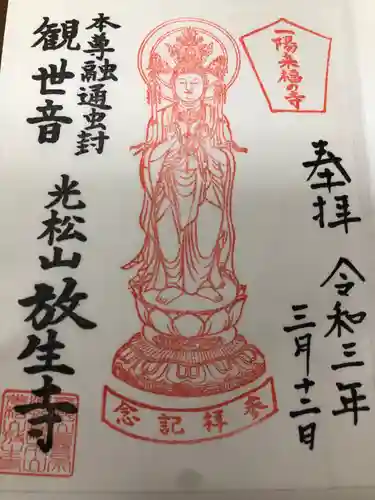 一陽来福の寺
奉拝
令和三年
三月十二日
参拝記念
本尊融通虫封
観世音
光松山
放生寺